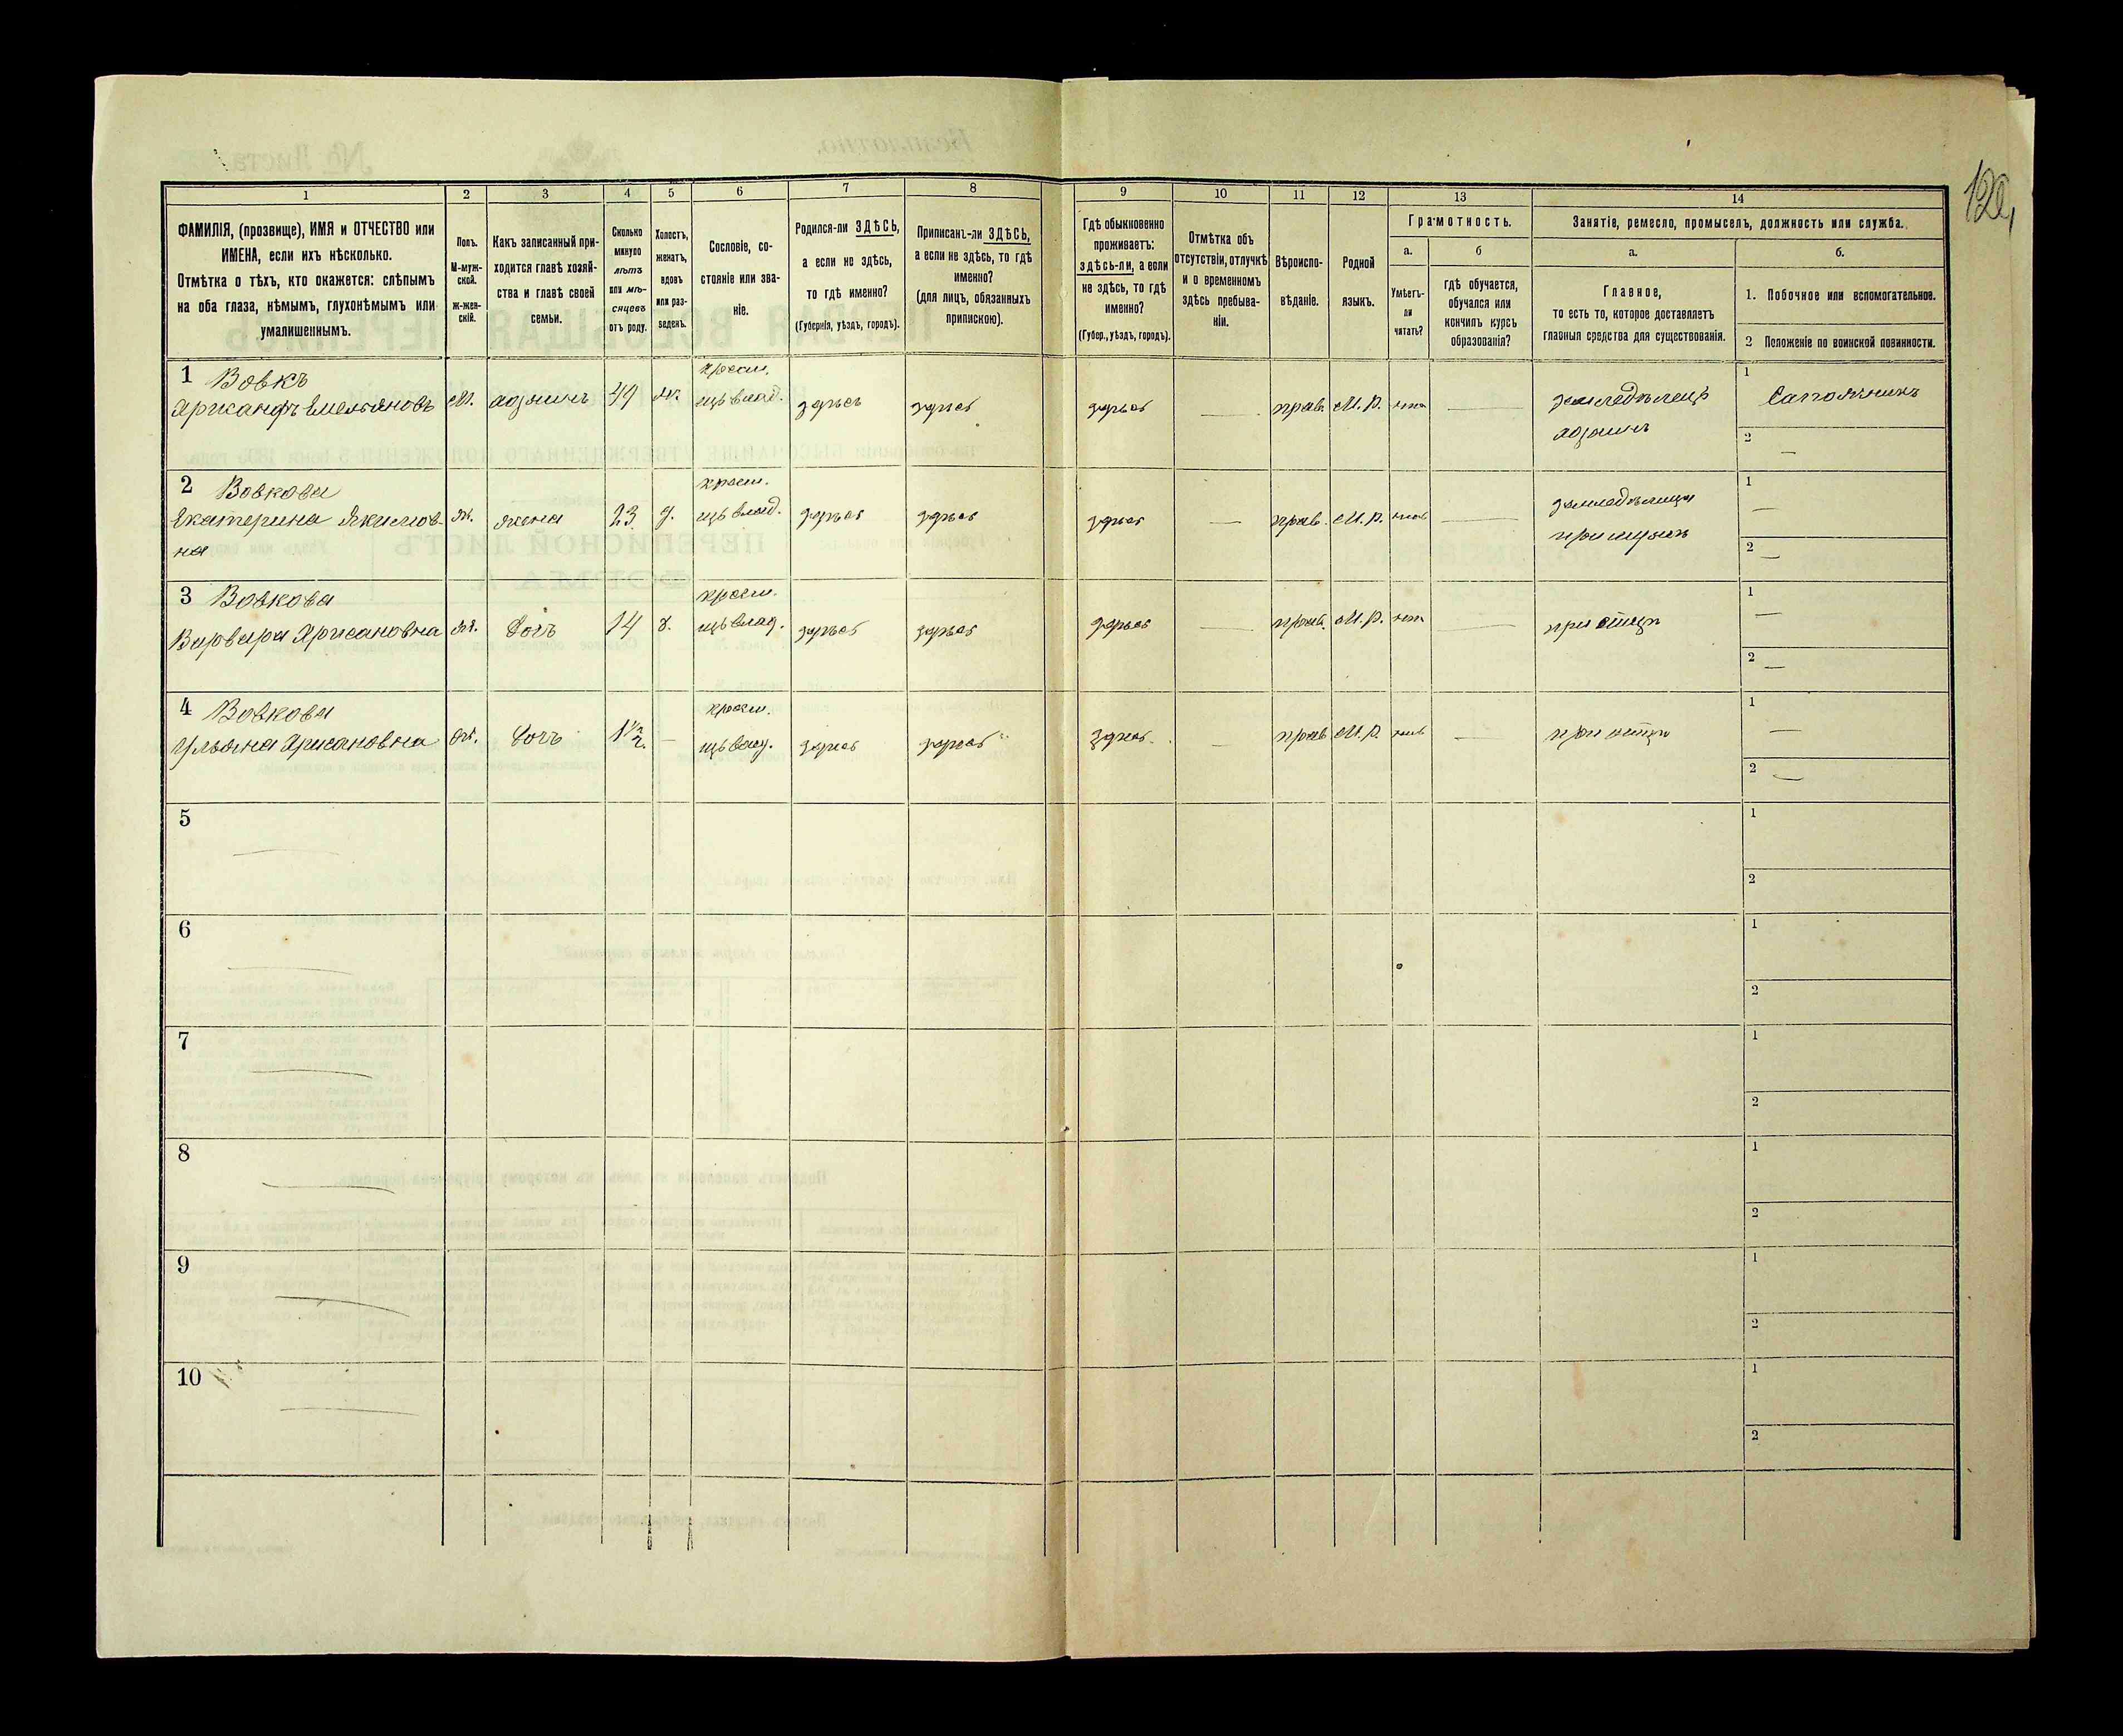 120
1 2 3 4 5 6 7 8 9 10 11 12 13 14
ФАМИЛІЯ, (прозвище), ИМЯ и ОТЧЕСТВО или
ИМЕНА, если ихъ нѣсколько.
Отмѣтка о тѣхъ, кто окажется: слѣпымъ
на оба глаза, нѣмымъ, глухонѣмымъ или
умалишеннымъ.
Полъ.
М-муж-
ской.
Ж-жен-
скій.
Какъ записанный при-
ходится главѣ хозяй-
ства и главѣ своей
семьи.
Сколько
минуло
лѣтъ
или мѣ-
сяцевъ
отъ роду.
Холостъ,
женатъ,
вдовъ
или раз-
веденъ.
Сословіе, со-
стояніе или зва-
ніе.
Родился-ли ЗДѢСЬ,
а если не здѣсь,
то гдѣ именно?
(Губернія, уѣздъ, городъ).
Приписанъ-ли ЗДѢСЬ,
а если не здѣсь, то гдѣ
именно?
(для лицъ, обязанныхъ
припискою).
Гдѣ обыкновенно
проживаетъ:
здѣсь-ли, а если
не здѣсь, то гдѣ
именно?
(Губер., уѣздъ, городъ).
Отмѣтка объ
отсутствіи, отлучкѣ
и о временномъ
здѣсь пребыва-
ніи.
Вѣроиспо-
вѣданіе.
Родной
языкъ.
Грамотность.
а.
Умѣетъ-
ли
читать?
б
гдѣ обучается,
обучался или
кончилъ курсъ
образованія?
Занятіе, ремесло, промыселъ, должность или служба.
а.
Главное,
то есть то, которое доставляетъ
главныя средства для существованія.
б.
1. Побочное или вспомогательное.
2 Положеніе по воинской повинности.
1 Вовкъ крест. 1
Хрисанфъ Емельяновъ М. хозяинъ 49 ж. щъ влад. здѣсь здѣсь здѣсь — прав. М. р. нѣтъ — земледѣлецъ Сапожникъ
хозяинъ 2 —
2 Вовкова крест. 1 —
Екатерина Якимов- ж. жена 23 з. щъ влад. здѣсь здѣсь здѣсь — прав. М. р. нѣтъ — земледѣлица
на при мужѣ 2 —
3 Вовкова крест. 1 —
Варвара Хрисановна ж. дочь 14 щъ влад. здѣсь здѣсь здѣсь — прав. М. р. нѣтъ — при отцѣ
2 —
4 Вовкова крест. 1 —
Ульяна Хрисановна ж. дочь 1½ — щъ влад. здѣсь здѣсь здѣсь — прав М. р. нѣтъ — при отцѣ
2 —
5 1
2
6 1
2
7 1
2
8 1
2
9 1
2
10 1
2